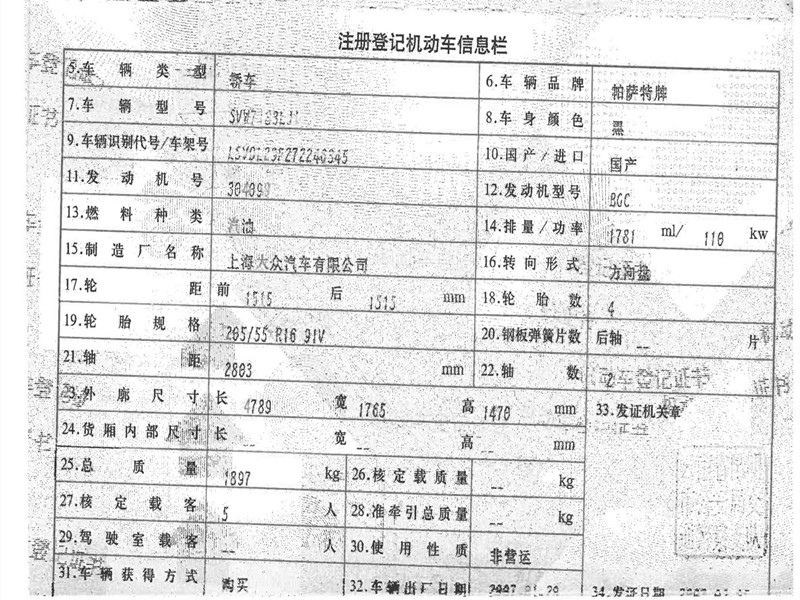 注册登记机动车信息栏
5.车辆类型 轿车 6.车辆品牌 帕萨特牌
7.车辆型号 8.车身颜色 黑
9.车辆识别代号/车架号 10.国产/进口 国产
11.发动机号 304099 12.发动机型号 BGC
13.燃料种类 汽油 14.排量/功率 1781 ml/ 110 kw
15.制造厂名称 上海大众汽车有限公司 16.转向形式 方向盘
17.轮距 前 1515 后 1515 mm 18.轮胎数 4
19.轮胎规格 205/55 R16 91V 20.钢板弹簧片数 后轴 -- 片
21.轴距 2803 mm 22.轴数 2
23.外廓尺寸 长 4789 宽 1765 高 1470 mm 33.发证机关章
24.货厢内部尺寸 长 -- 宽 -- 高 -- mm
25.总质量 1897 kg 26.核定载质量 -- kg
27.核定载客 5 人 28.准牵引总质量 -- kg
29.驾驶室载客 -- 人 30.使用性质 非营运
31.车辆获得方式 购买 32.车辆出厂日期 34.发证日期